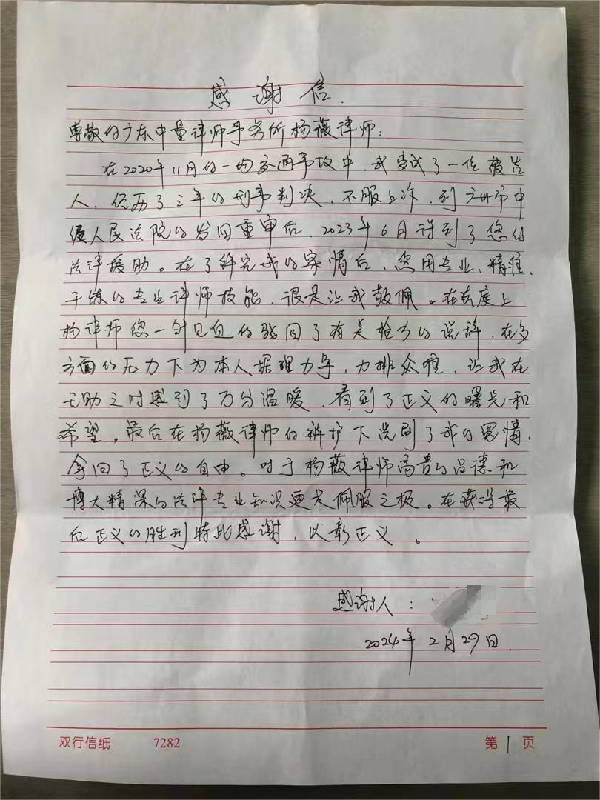 感谢信.
尊敬的广东中量律师事务所杨薇律师:
在2020年11月的一场交通事故中,我当成了一位被告
人,经历了三年的刑事判决,不服上诉,到广州市中
级人民法院的发回重审后,2023年6月得到了您的
法律援助。在了解完我的案情后,您用专业、精准、
干练的专业律师技能,很是让我敬佩。在法庭上
杨律师您一针见血的驳回了有关检方的说辞,在多
方面的压力下为本人据理力争,力排众难,让我在
无助之时感到了万分温暖,看到了正义的曙光和
希望。最后在杨薇律师的辩护下洗刷了我的冤情,
拿回了正义的自由。对于杨薇律师高贵的品德和
博大精深的法律专业知识更是佩服之极。在获得最
后正义的胜利特此感谢,以彰正义。
感谢人:
2024年2月29日.
双行信纸 7282 第1页